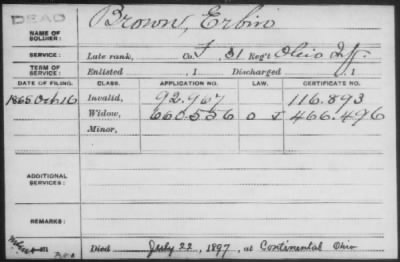 DEAD
NAME OF SOLDIER: Brown, Erbin
SERVICE: Late rank, Co. F, 31 Reg't Ohio Inf.
TERM OF SERVICE: Enlisted , 1 Discharged , 1
DATE OF FILING. CLASS. APPLICATION NO. LAW. CERTIFICATE NO.
1865 Oct 16 Invalid, 92.967 116.893
Widow, 660.556 466.496
Minor,
ADDITIONAL SERVICES:
REMARKS:
Died July 22, 1897, at Continental Ohio